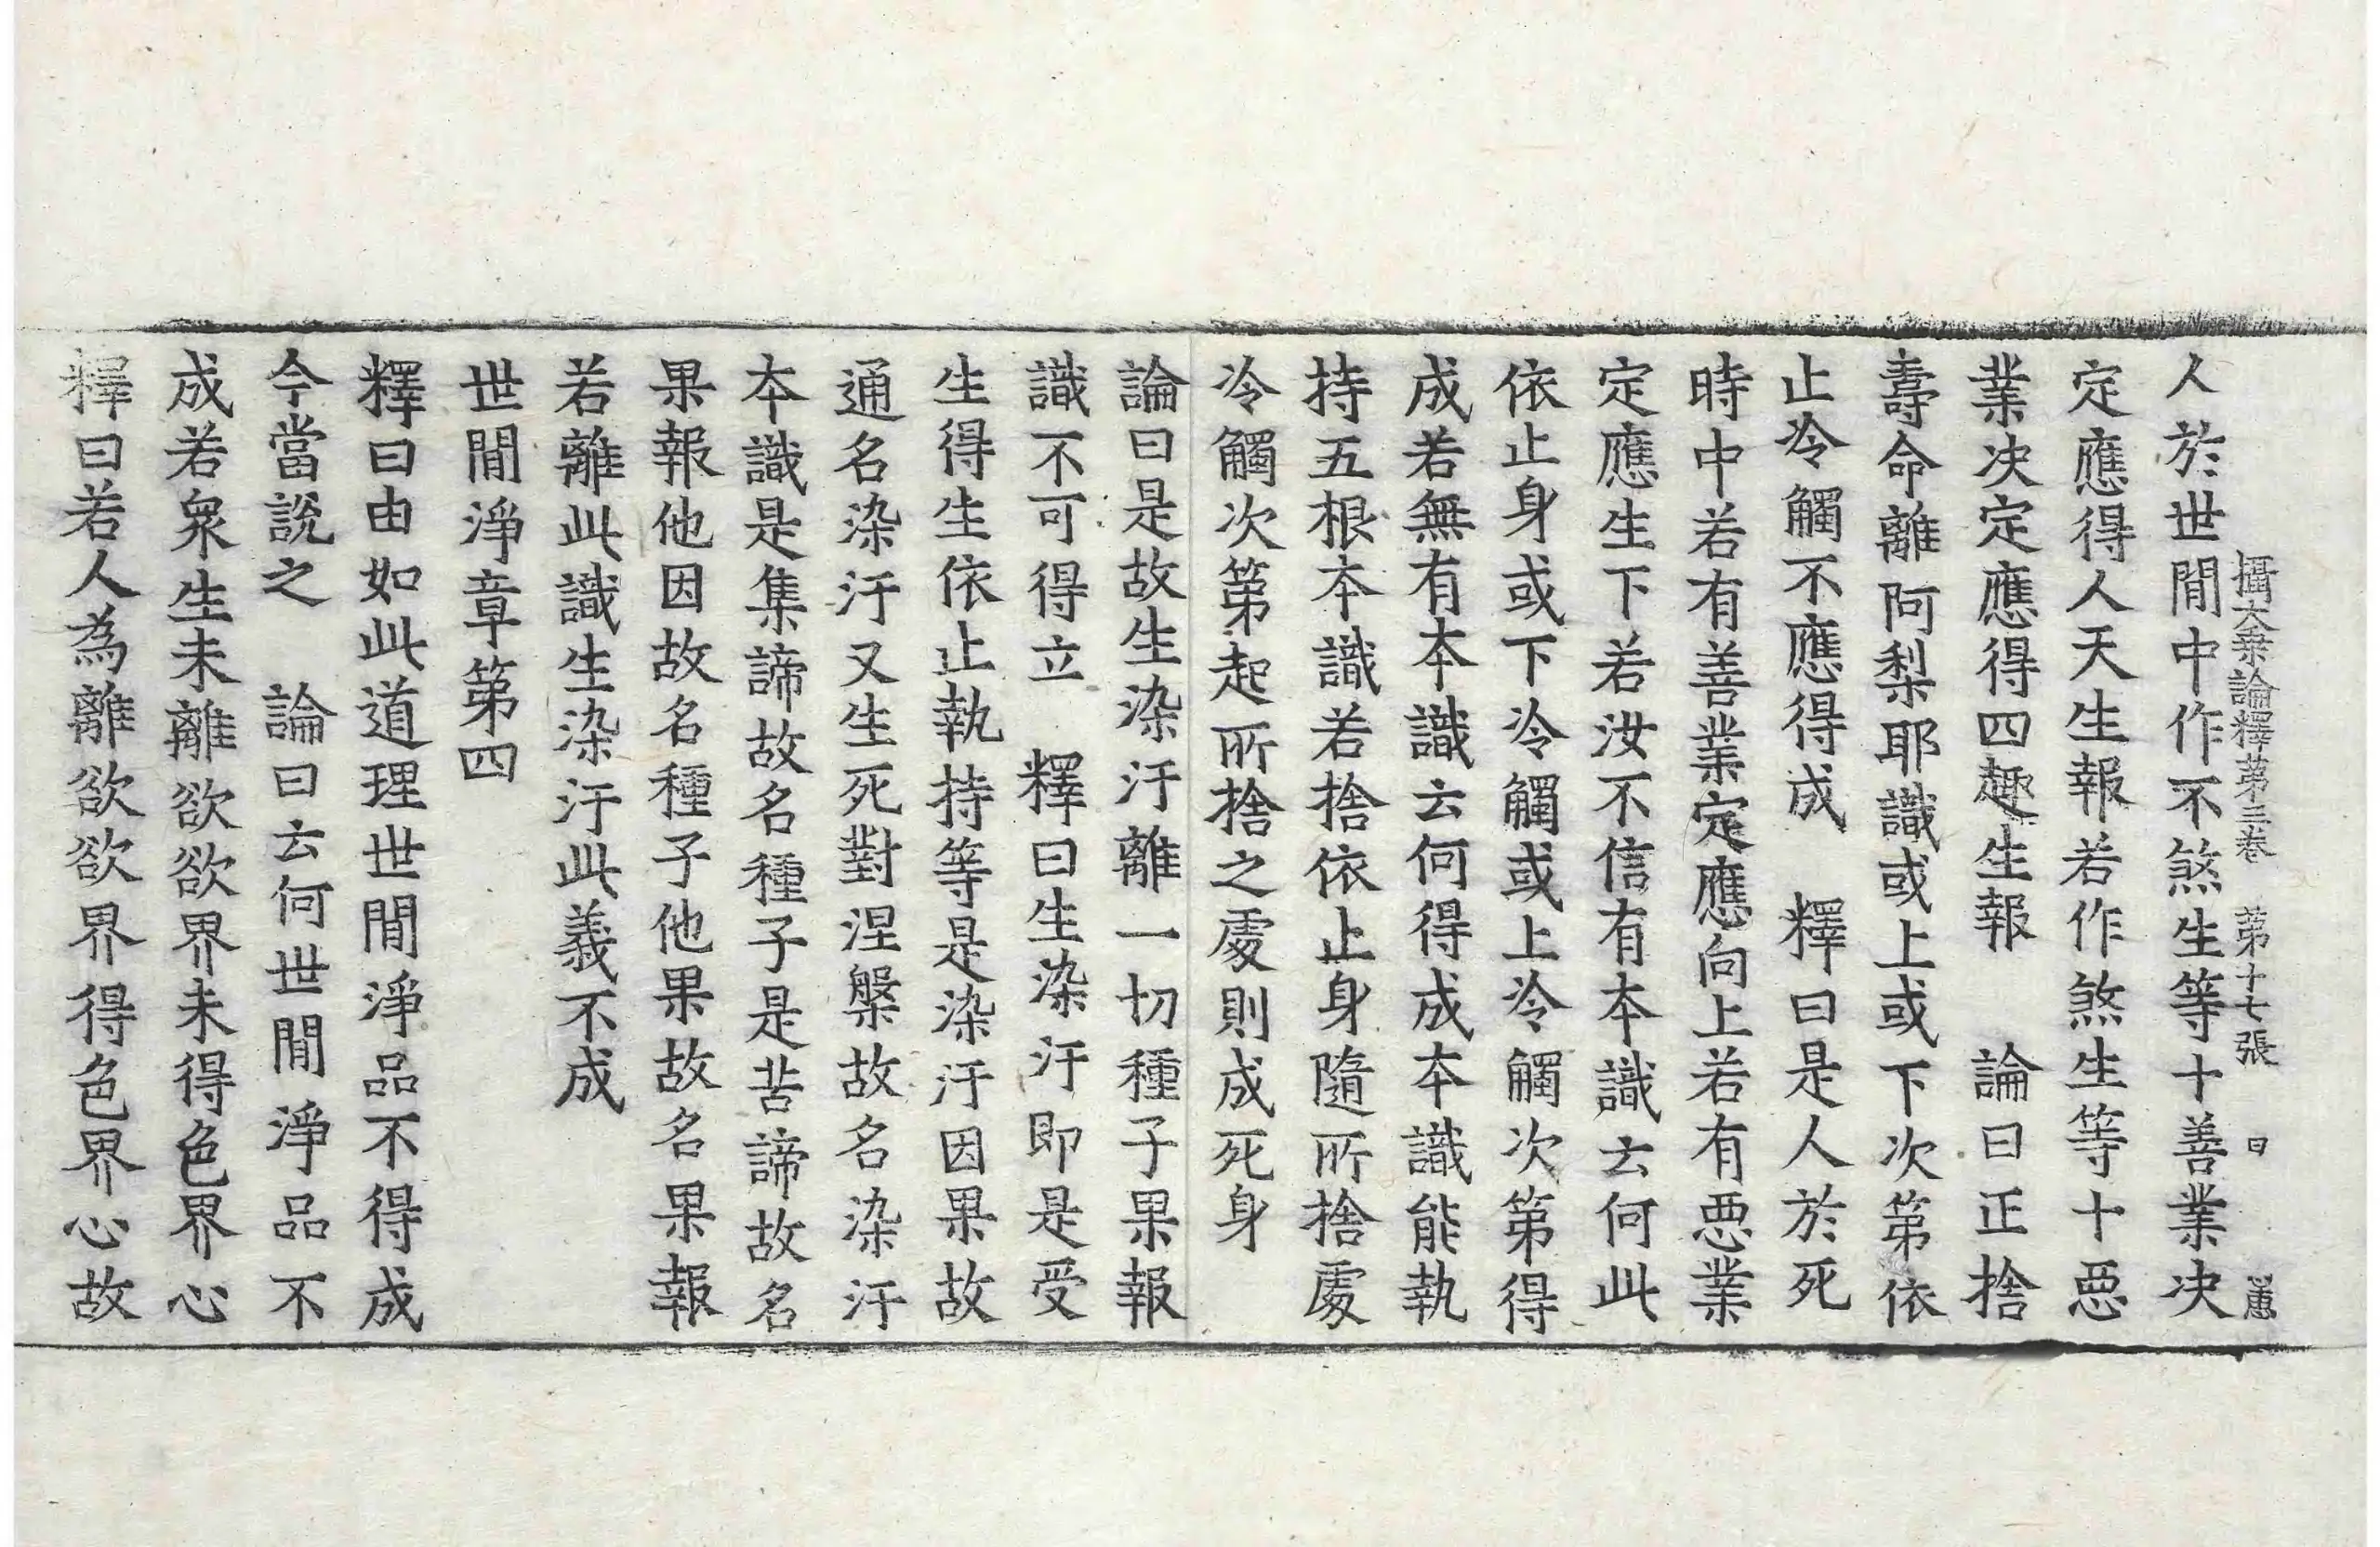 攝大乗論釋第三卷　第十七張　曰
人於世間中作不煞生等十善業决
定應得人天生報若作煞生等十惡
業决定應得四趣生報　論曰正捨
壽命離阿梨耶識或上或下次第依
止冷觸不應得成　釋曰是人於死
時中若有善業定應向上若有惡業
定應生下若汝不信有本識云何此
依止身或下冷觸或上冷觸次第得
成若無有本識云何得成本識能執
持五根本識若捨依止身隨所捨處
冷觸次第起所捨之處則成死身
論曰是故生染汙離一切種子果報
識不可得立　釋曰生染汙即是受
生得生依止執持等是染汙因果故
通名染汙又生死對涅槃故名染汙
本識是集諦故名種子是苦諦故名
果報他因故名種子他果故名果報
若離此識生染汙此義不成
世間淨章第四
釋曰由如此道理世間淨品不得成
今當說之　論曰云何世間淨品不
成若衆生未離欲欲界未得色界心
釋曰若人為離欲欲界得色界心故